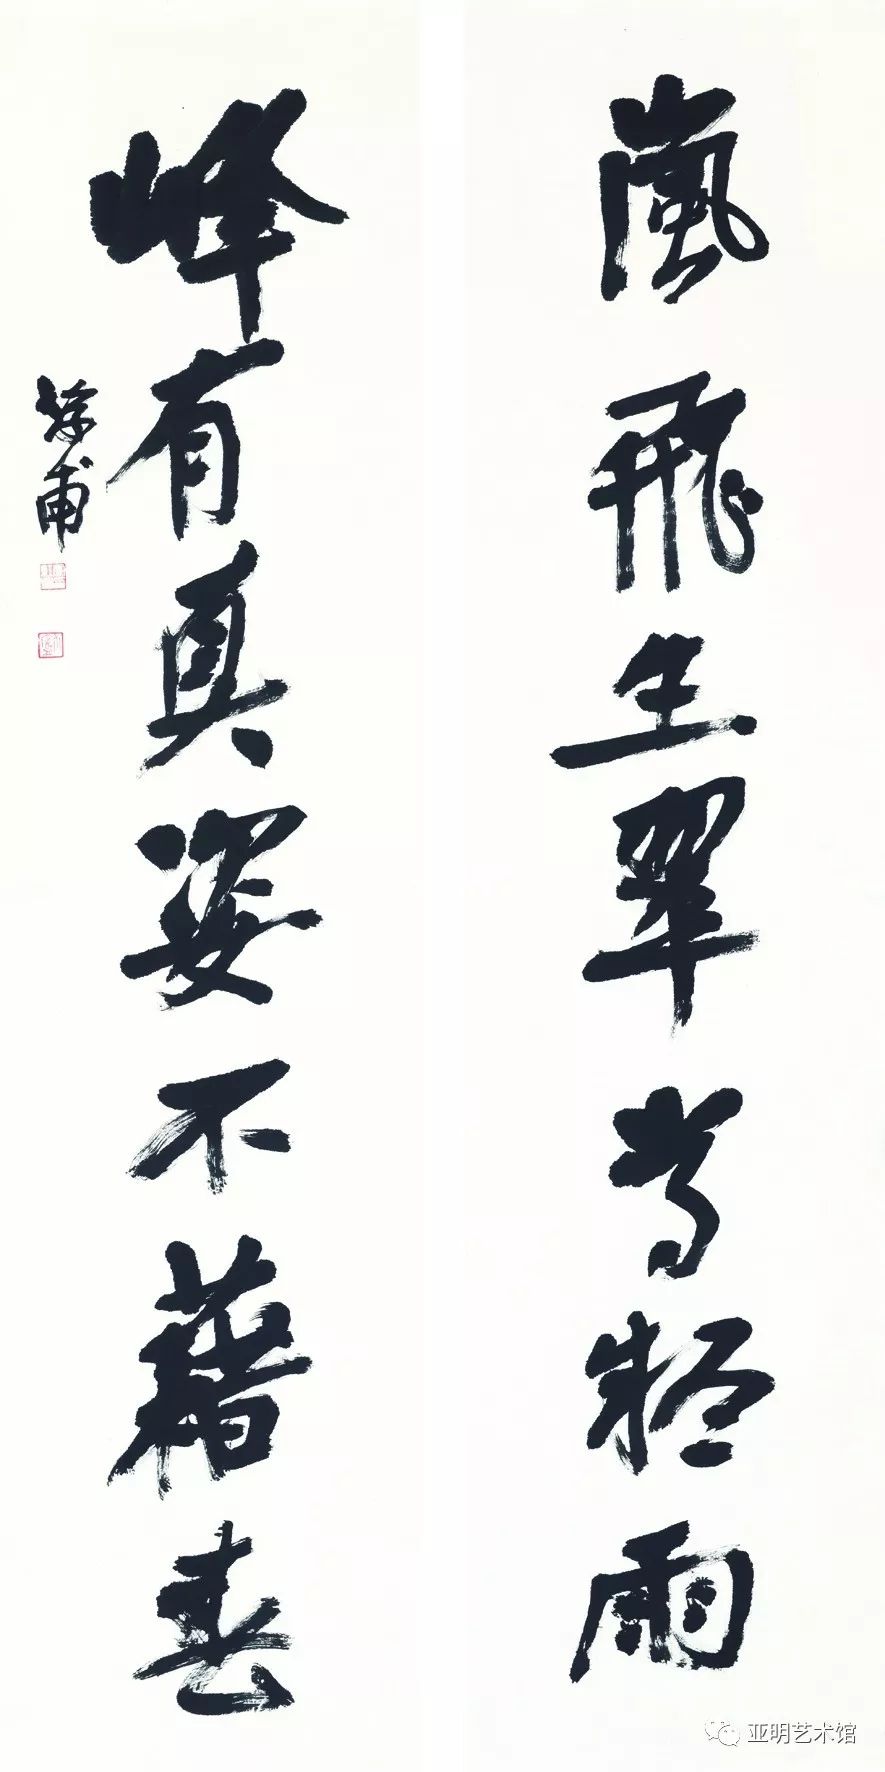 嵐飛生翠常雨
峰有真姿不藉春
甫
亚明艺术馆